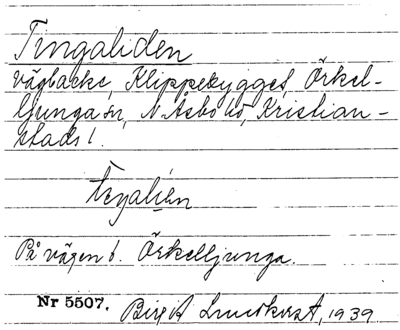 Tingaliden
vägbacke, Klippebygget, Örkel-
ljunga sn, N Åsbo hd, Kristian-
stads l.
På vägen t. Örkelljunga.
Nr 5507. Birgit Lundkvist, 1939